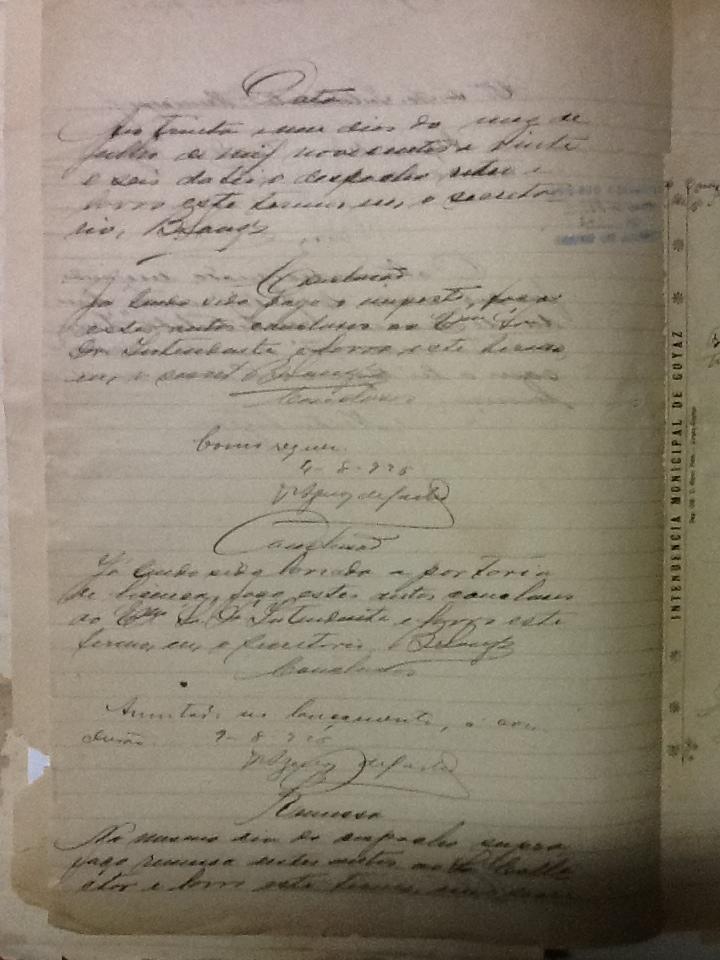 Data
Aos trinta e um dias do mez de
julho de mil novecentos e vinte
e seis datei o despacho retro e
lavro este termo eu, o secreta
rio,
Conclusão
Já tendo sido pago o imposto, faço
esses autos conclusos ao Exmo Snr
Dr Intendente e lavro este termo
eu, o secret
Conclusos
Como requer.
4-8-926
Conclusão
Já tendo sido lavrada a portaria
de licença, faço estes autos conclusos
ao Exmo Sr Dr Intendente e lavro este
termo, eu, o secretario
Conclusos
lançamento, á
9-8-926
Remessa
No mesmo dia do despacho supra
faço remessa destes autos ao Sr Colle
ctor e lavro este termo
INTENDENCIA MUNICIPAL DE GOYAZ